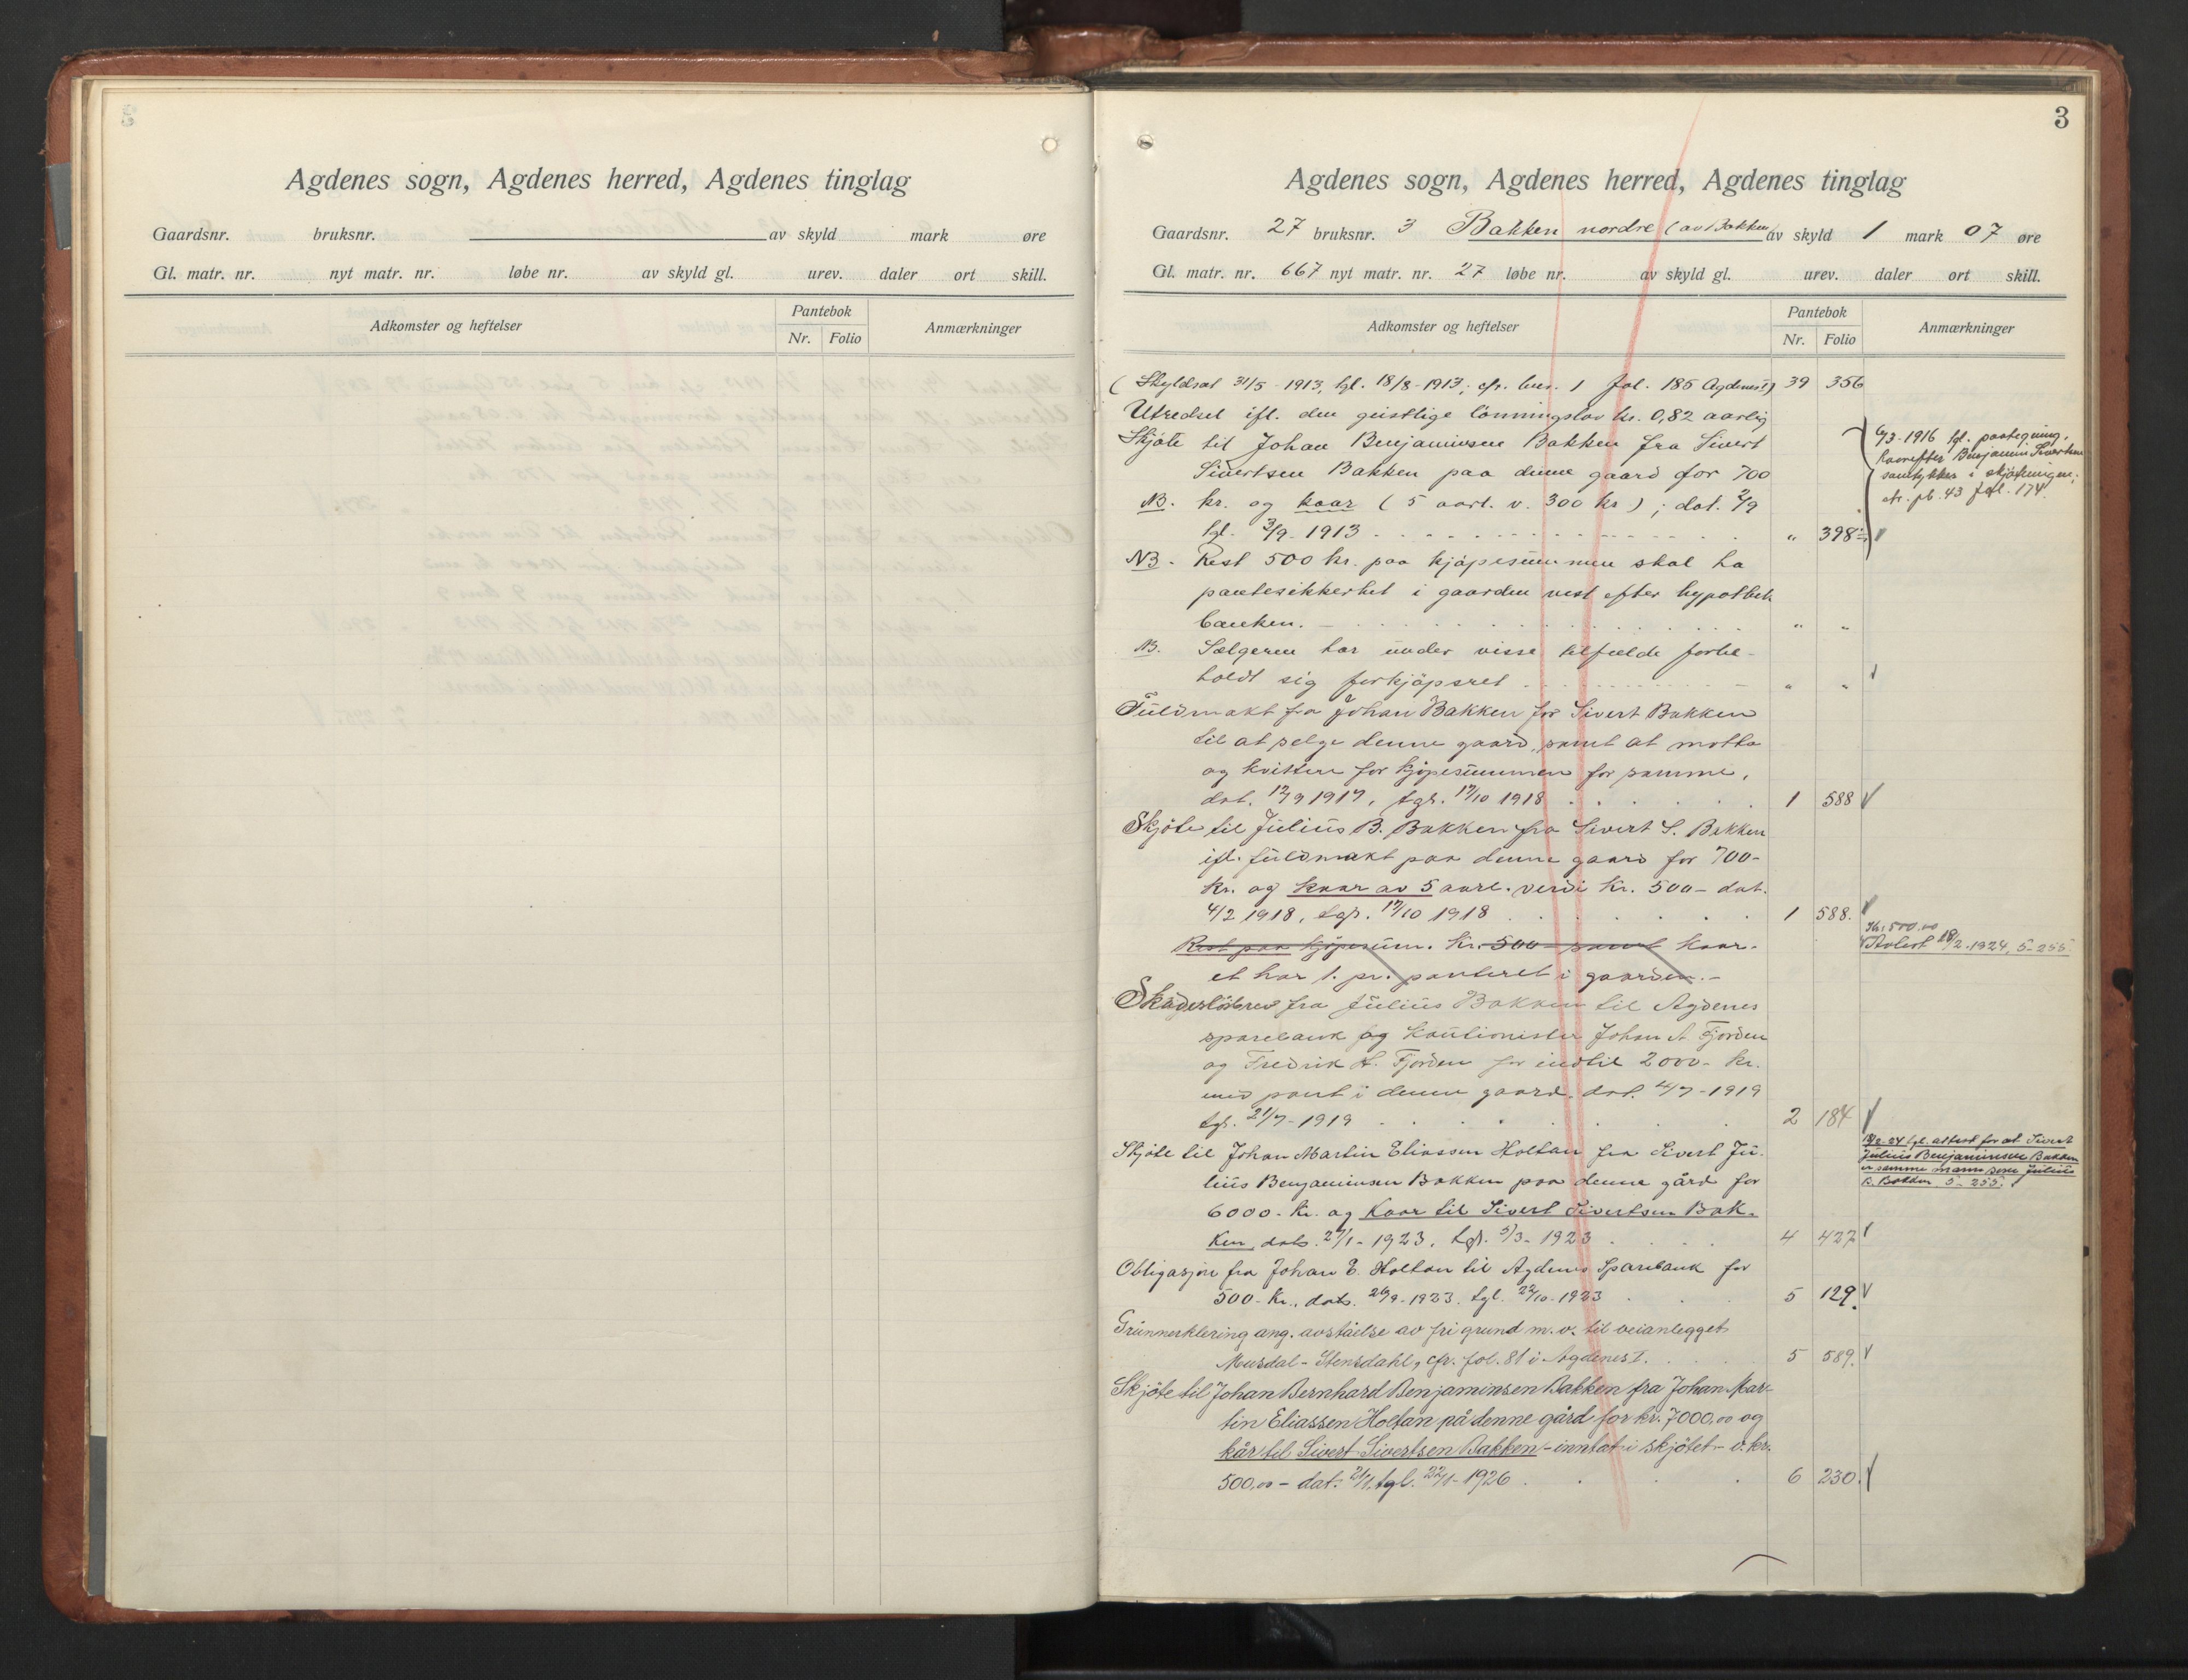 3
Agdenes sogn, Agdenes herred, Agdenes tinglag
Gaardsnr. bruksnr. av skyld mark øre
Gl. matr. nr. nyt matr. nr. løbe nr. av skyld gl. urev. daler ort skill.
Adkomster og heftelser Pantebok Nr. Folio Anmærkninger
3
Agdenes sogn, Agdenes herred, Agdenes tinglag
Gaardsnr. 27 bruksnr. 3 Bakken nordre (av Bakken) av skyld 1 mark 07 øre
Gl. matr. nr. 667 nyt matr. nr. 27 løbe nr. av skyld gl. urev. daler ort skill.
Adkomster og heftelser Pantebok Nr. Folio Anmærkninger
(Skyldsat 31/5 - 1913, tgl. 18/8 - 1913; cfr. bnr. 1 fol. 185 Agdenes I) 39 356
Utredsel ifl. den geistlige lönningslov kr. 0,82 aarlig
Skjöte til Johan Benjaminsen Bakken fra Sivert
Sivertsen Bakken paa denne gaard for 700
NB. kr. og kaar (5 aarl. v. 300 kr); dat. 2/9
tgl. 3/9 - 1913 " 398
6/3-1916 tgl. paategning,
hvorefter Benjamin Sivertsen
samtykker i skjötningen;
cfr. pb. 43 fol. 174.
NB. Rest 500 kr. paa kjöpesummen skal ha
pantesikkerhet i gaarden næst efter hypothek
banken. - " "
NB. Sælgeren har under visse tilfælde forbe-
holdt sig forkjöpsret " "
Fuldmakt fra Johan Bakken for Sivert Bakken
til at selge denne gaard, samt at motta
og kvittere for kjöpesummen for samme,
dat. 12/9 1917, tgl. 17/10 1918 1 588
Skjöte til Julius B. Bakken fra Sivert S. Bakken
ifl. fuldmakt paa denne gaard for 700-
kr. og kaar av 5 aarl. verdi kr. 500- dat.
4/2 1918, tgl. 17/10 1918 1 588.
Rest paa kjöpesum. kr. 500- samt kaar-
et har 1. pr. panteret i gaarden. -
Kr. 500.00
Avlest 18/2-1924, 5-255.
Skadeslösbrev fra Julius Bakken til Agdenes
sparebank og kautionister Johan A Fjorden
og Fredrik H. Fjorden for indtil 2000- kr.
med pant i denne gaard, dat. 4/7-1919
tgl. 21/7-1919 2 184
Skjöte til Johan Martin Eliassen Holtan fra Sivert Ju-
lius Benjaminsen Bakken paa denne gård for
6000- kr. og kaar til Sivert Sivertsen Bak-
ken, dat. 27/1-1923, tgl. 5/3-1923 4 427
18/2-24 tgl. attest for at Sivert
Julius Benjaminsen Bakken
er samme mann som Julius
B. Bakken 5-255.
Obligasjon fra Johan E. Holtan til Agdenes Sparebank for
500- kr., dat. 26/9-1923, tgl. 22/10-1923 5 129.
Grunnerklering ang. avståelse av fri grund m.v. til veianlegget
Musdal - Stensdahl, cfr. fol. 81 i Agdenes I. 5 589.
Skjöte til Johan Bernhard Benjaminsen Bakken fra Johan Mar-
tin Eliassen Holtan på denne gård for kr. 7000,00 og
kår til Sivert Sivertsen Bakken - inntat i skjötet - v. kr.
500,00 - dat. 21/1, tgl. 22/1-1926 6 230.